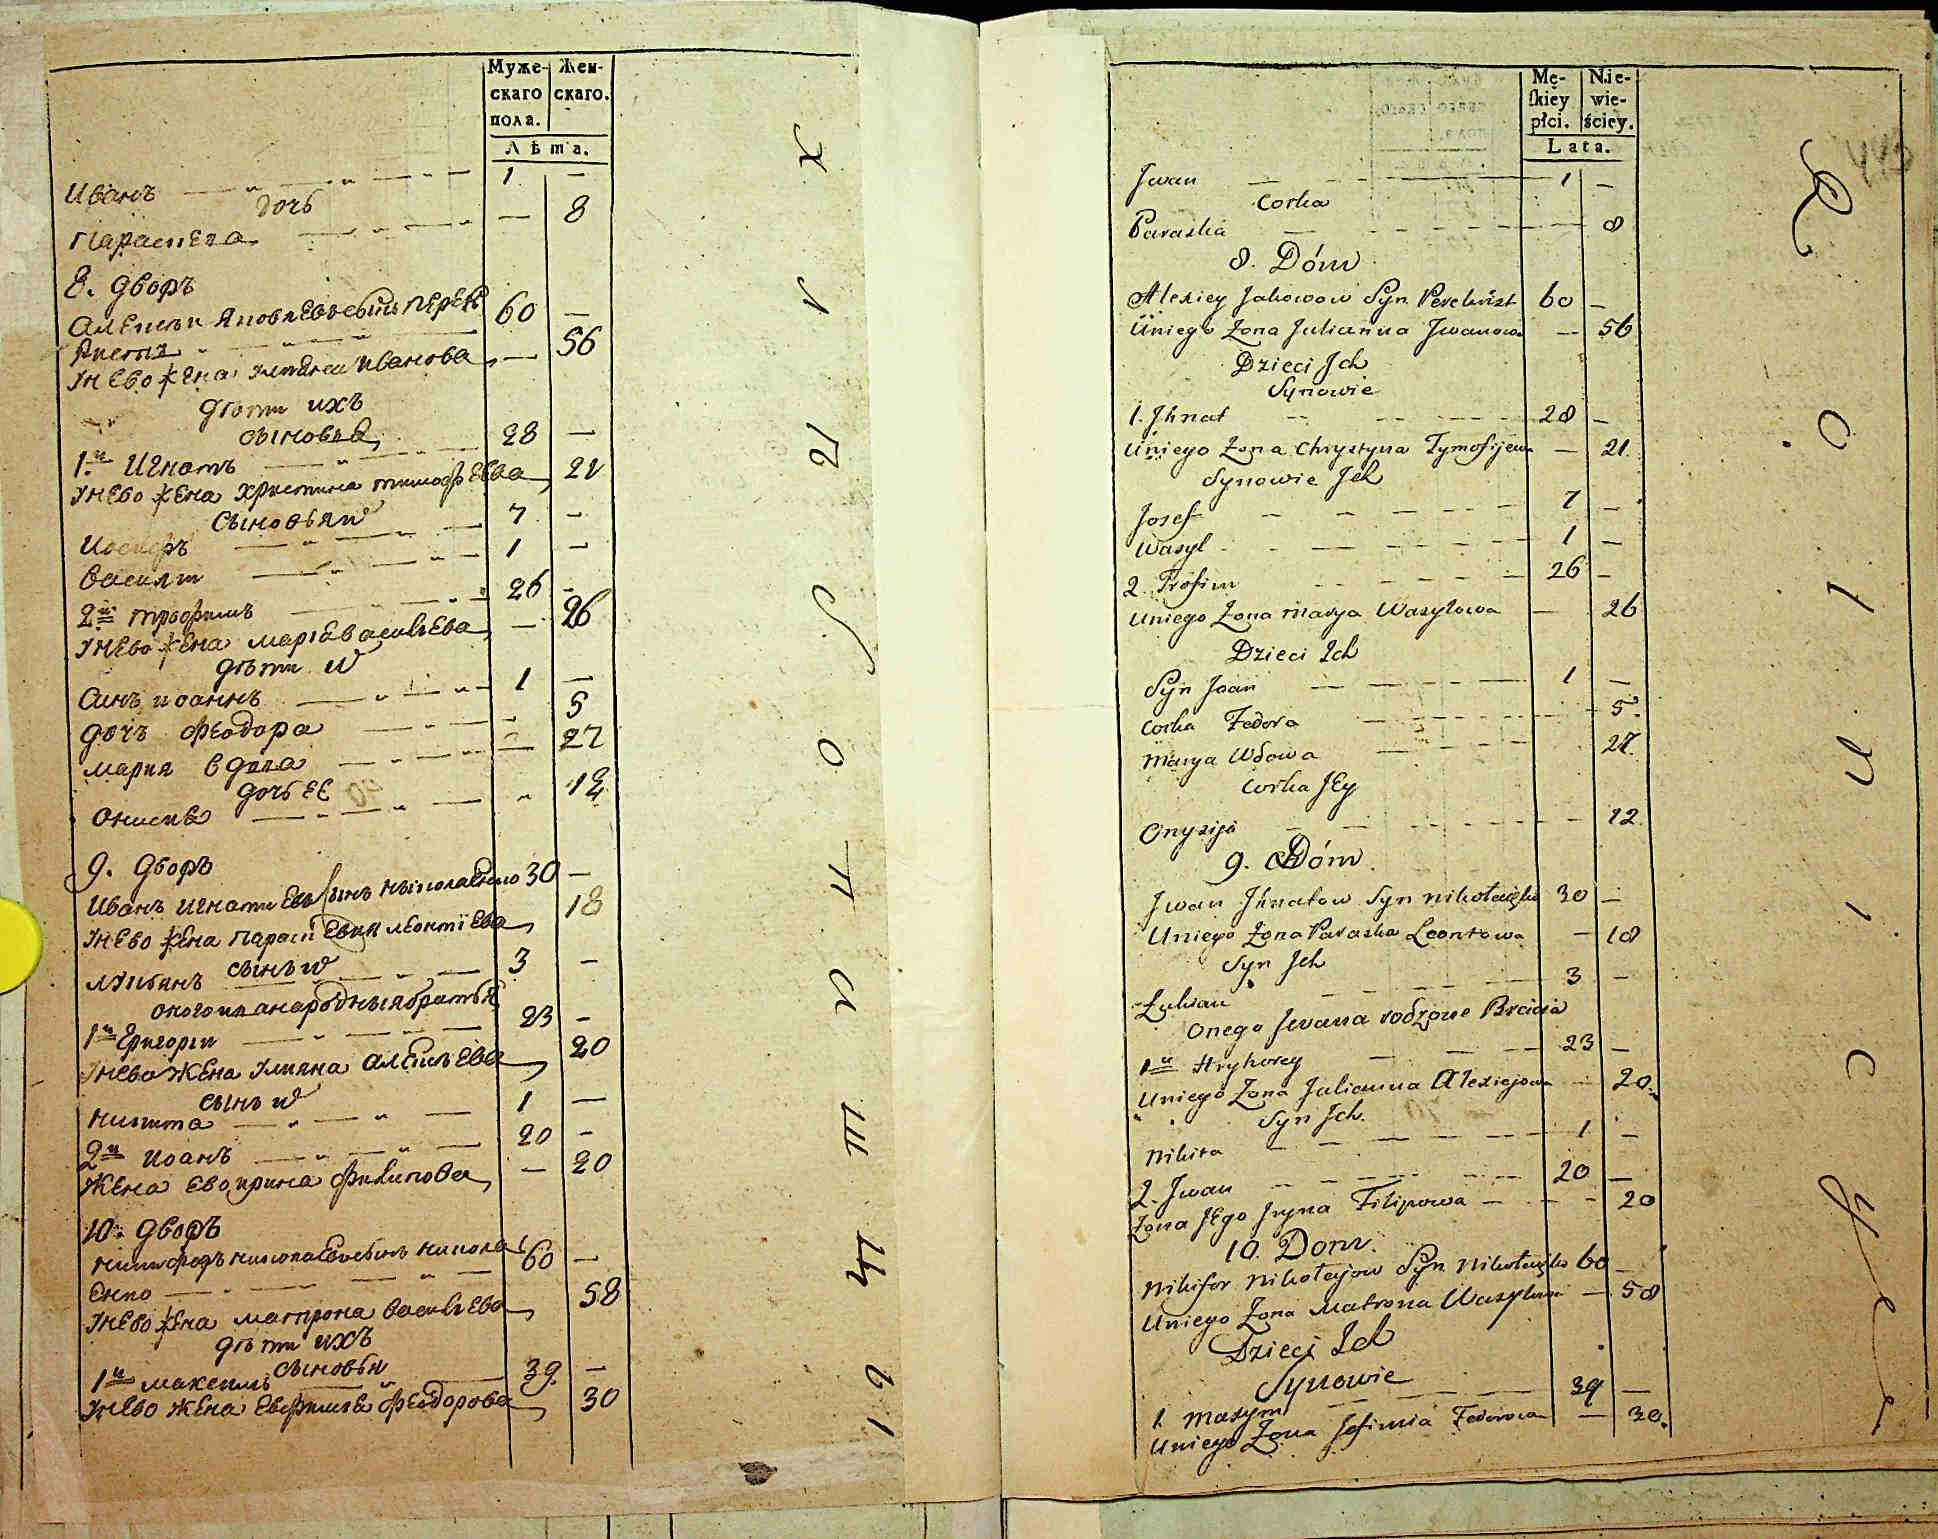 Муже- Жен-
скаго скаго.
пола.
Лѣта.
Иванъ 1 —
дочь
Параскева — 8
8. дворъ
Алексѣи Яковлевъ сынъ Перек 60 —
ристъ
Унево жена Улияна Иванова — 56
дѣти ихъ
сыновья
1й Игнатъ 28 —
Унево жена Христина Тимофеева 21
Сыновья их
Иосифъ 7 —
Василии 1 —
2й Трофимъ 26 —
Унево жена Мария Васильева — 26
дѣти их
Синъ Иоаннъ 1 —
дочъ Феодора 5
Мария вдова — 27
дочь ее
Онисия 12
9. дворъ
Иванъ Игнатиевъ сынъ Николаенко 30 —
Унево жена Параскевия Леонтіева 18
сынъ их
Лукиянъ 3 —
оного Ивана родныя братья
1й Григорїи 23 —
Унево жена Улияна Алексѣева 20
сынъ их
Никита 1 —
2й Иоанъ 20 —
Жена Ево Ирина Филипова — 20
10. дворъ
Никифоръ Николаевъ сынъ Никола 60 —
енко
Унево жена Матрона Васильева 58
дѣти ихъ
сыновья
1й Максимъ 39 —
Унево жена Евфимия Феодорова 30
Х л п о п и
Mę- Nie-
skiey wie-
płci. ściey.
Lata.
Jwan 1 —
Corka
Paraska 8
8. Dóm
Alexiey Jakowow Syn Perekrist 60 —
Uniego Żona Julianna Jwanowa — 56
Dzieci Jch
Synowie
1. Jhnat 28 —
Uniego Żona Chrystyna Tymofijewa — 21
Synowie Jch
Josef 7 —
Wasyl 1 —
2. Trofim 26 —
Uniego Żona Marya Wasylowa — 26
Dzieci Jch
Syn Joan 1 —
Corka Fedora 5
Marya Wdowa 27
Corka JEy
Onyzija 12
9. Dóm
Jwan Jhnatow Syn Nikołaięko 30 —
Uniego Żona Paraska Leontowa — 18
Syn Jch
Łukian 3 —
Onego Jwana rodzone Bracia
1й Hryhorey 23 —
Uniego Żona Julianna Alexiejowa — 20
Syn Jch.
Nikita 1 —
2. Jwan 20 —
Żona JEgo Jryna Filipowa — 20
10. Dom.
Nikifor Nikołajow Syn Nikołaięko 60 —
Uniego Żona Matrona Wasylowa — 58
Dzieci Jch
Synowie
1. Maxym 39 —
Uniego Żona Jefimia Fedorowa — 30.
R o l n i c y